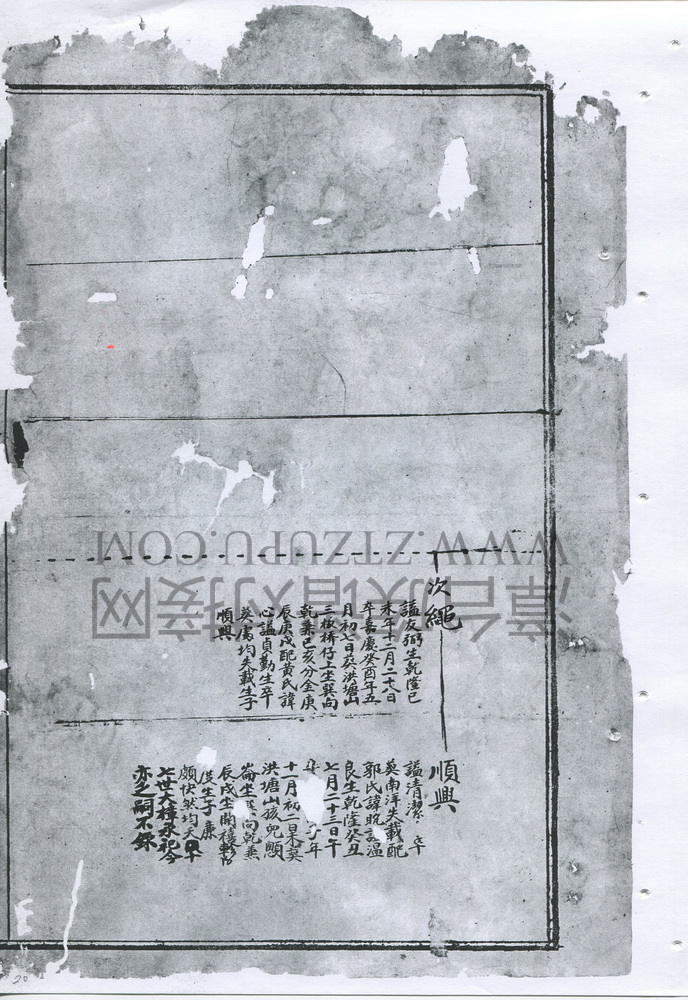 次繩
謚友弼生乾隆巳
未年十二月二十八日
卒嘉慶癸酉年五
月初七日葬洪塘山
三板橋仔上坐巽向
乾兼巳亥分金庚
辰庚戌配黄氏諱
心謚貞勤生卒
葬處均失載生子
順興
順興
謚清潔 卒
葬南洋失載配
郭氏諱 謚温
良生乾隆癸丑
七月二十三日午
年
十一月初二日未葬
洪塘山 兜
崙坐巽向乾兼
辰戌坐開禧
度生子廉
頗快然均夭
七世大樟承祀今
亦乏嗣不錄
WWW.ZTZUPU.COM
漳台族谱对接网
20